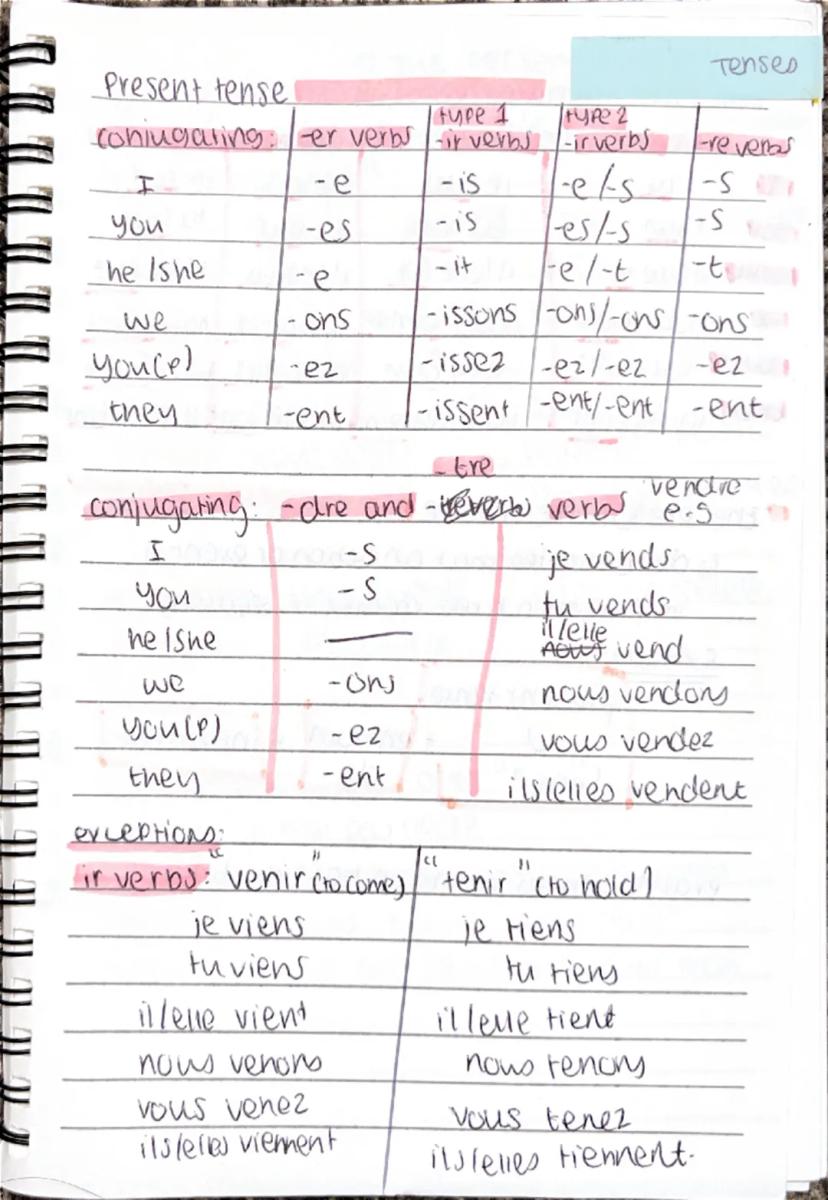 Tenses
Present tense
type 1 type 2
conjugating: -er verbs -ir verbs -ir verbs -re verbs
I -e -is -e/-s -s
you -es -is -es/-s -s
he/she -e -it -e/-t -t
we -ons -issons -ons/-ons -ons
you(p) -ez -issez -ez/-ez -ez
they -ent -issent -ent/-ent -ent
-tre vendre
conjugating: -dre and verbs e.g
I -s je vends
you -s tu vends
il/elle
he/she — nous vend
we -ons nous vendons
you(p) -ez vous vendez
they -ent ils/elles vendent
exceptions:
ir verbs: "venir" (to come) "tenir" (to hold)
je viens je tiens
tu viens tu tiens
il/elle vient il/elle tient
nous venons nous tenons
vous venez vous tenez
ils/elles viennent ils/elles tiennent.